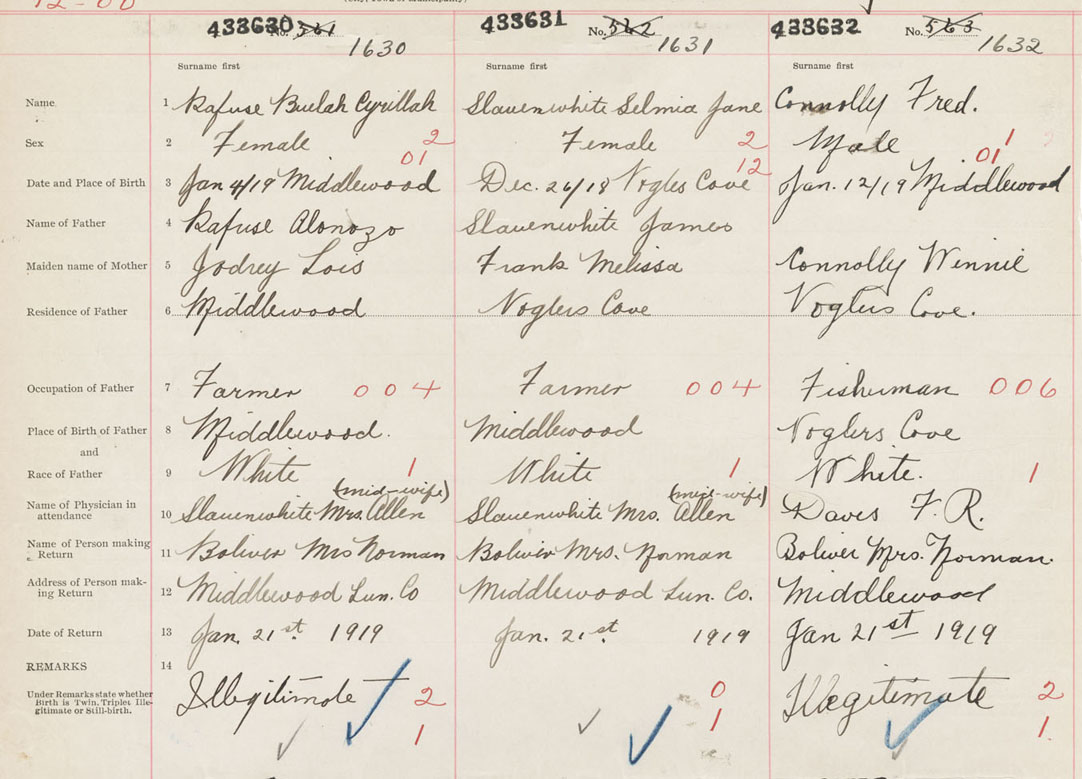 12-00
433630 No. 561 1630 433631 No. 562 1631 433632 No. 563 1632
Surname first Surname first Surname first
Name 1 Rafuse Beulah Cyrillah Slauenwhite Selmia Jane Connolly Fred.
Sex 2 Female 2 Female 2 Male 1
01 12 01
Date and Place of Birth 3 Jan 4/19 Middlewood Dec. 26/18 Voglers Cove Jan. 12/19 Middlewood
Name of Father 4 Rafuse Alonozo Slauenwhite James
Maiden name of Mother 5 Jodrey Lois Frank Melissa Connolly Winnie
Residence of Father 6 Middlewood Voglers Cove Voglers Cove.
Occupation of Father 7 Farmer 004 Farmer 004 Fisherman 006
Place of Birth of Father 8 Middlewood. Middlewood Voglers Cove
and
Race of Father 9 White 1 White 1 White. 1
(mid-wife) (mid-wife)
Name of Physician in
attendance 10 Slauenwhite Mrs. Allen Slauenwhite Mrs. Allen Daves F.R.
Name of Person making
Return 11 Boliver Mrs Norman Boliver Mrs. Norman Boliver Mrs. Norman.
Address of Person mak-
ing Return 12 Middlewood Lun. Co Middlewood Lun. Co. Middlewood
Date of Return 13 Jan. 21st 1919 Jan. 21st. 1919 Jan 21st 1919
REMARKS 14
Under Remarks state whether
Birth is Twin, Triplet Ille-
gitimate or Still-birth.
Illegitimate 2 0 Illegitimate 2
1 1 1.